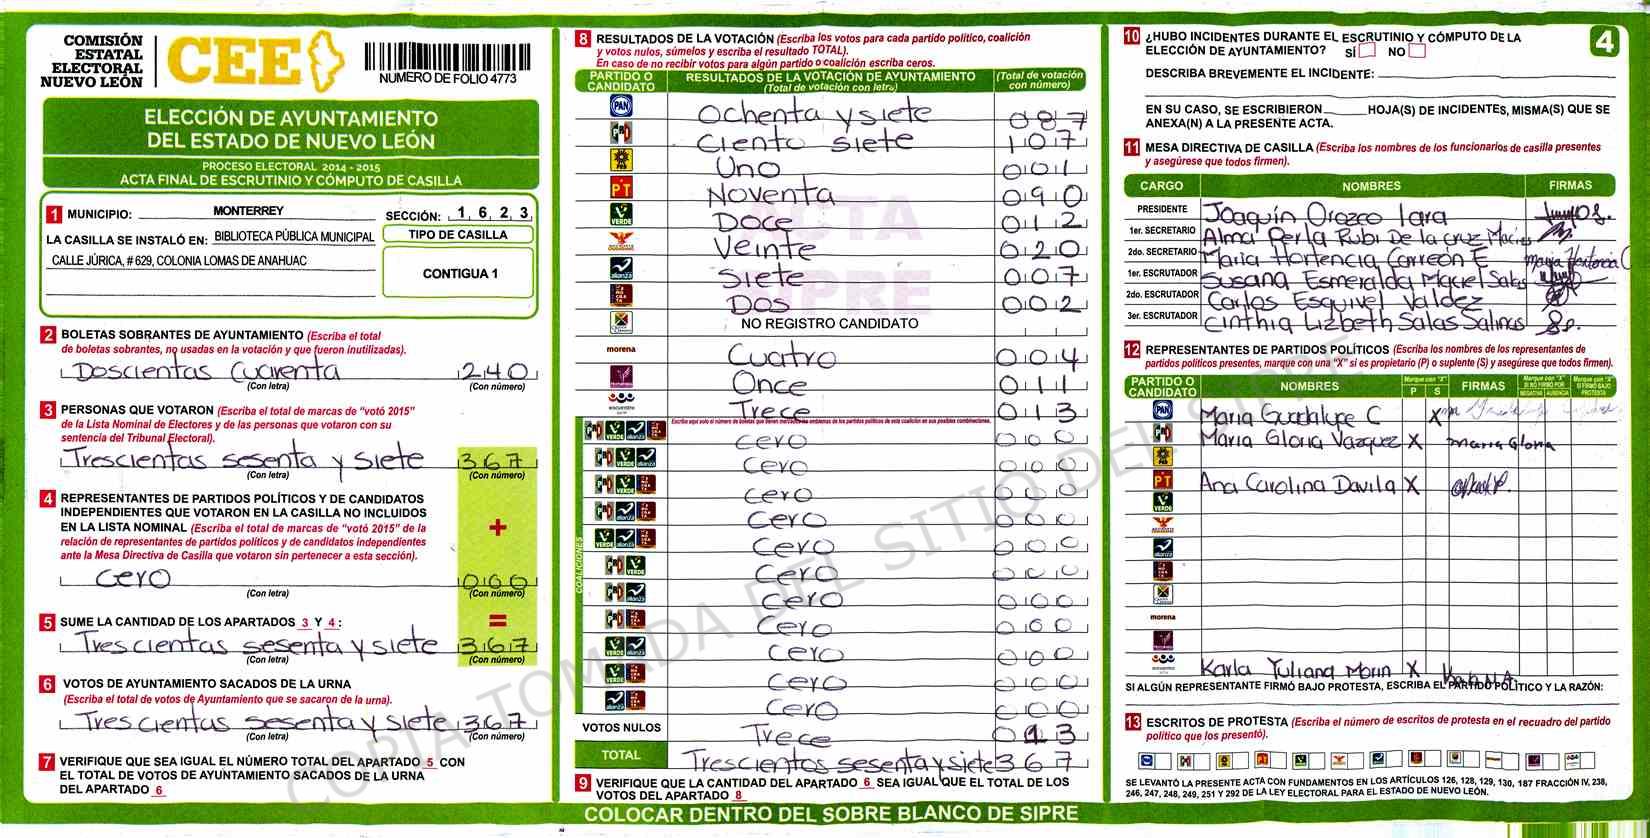 COMISIÓN
ESTATAL
ELECTORAL
NUEVO LEÓN
CEE
NUMERO DE FOLIO 4773
ELECCIÓN DE AYUNTAMIENTO
DEL ESTADO DE NUEVO LEÓN
PROCESO ELECTORAL 2014 - 2015
ACTA FINAL DE ESCRUTINIO Y CÓMPUTO DE CASILLA
1 MUNICIPIO: MONTERREY SECCIÓN: 1 6 2 3
LA CASILLA SE INSTALÓ EN: BIBLIOTECA PÚBLICA MUNICIPAL
CALLE JÚRICA, # 629, COLONIA LOMAS DE ANAHUAC
TIPO DE CASILLA
CONTIGUA 1
2 BOLETAS SOBRANTES DE AYUNTAMIENTO (Escriba el total
de boletas sobrantes, no usadas en la votación y que fueron inutilizadas).
Doscientas Cuarenta 240
(Con letra) (Con número)
3 PERSONAS QUE VOTARON (Escriba el total de marcas de "votó 2015"
de la Lista Nominal de Electores y de las personas que votaron con su
sentencia del Tribunal Electoral).
Trescientas sesenta y siete 367
(Con letra) (Con número)
4 REPRESENTANTES DE PARTIDOS POLÍTICOS Y DE CANDIDATOS
INDEPENDIENTES QUE VOTARON EN LA CASILLA NO INCLUIDOS
EN LA LISTA NOMINAL (Escriba el total de marcas de "votó 2015" de la
relación de representantes de partidos políticos y de candidatos independientes
ante la Mesa Directiva de Casilla que votaron sin pertenecer a esta sección).
+
cero 000
(Con letra) (Con número)
5 SUME LA CANTIDAD DE LOS APARTADOS 3 Y 4 : =
Trescientas sesenta y siete 367
(Con letra) (Con número)
6 VOTOS DE AYUNTAMIENTO SACADOS DE LA URNA
(Escriba el total de votos de Ayuntamiento que se sacaron de la urna).
Trescientas sesenta y siete 367
(Con letra) (Con número)
7 VERIFIQUE QUE SEA IGUAL EL NÚMERO TOTAL DEL APARTADO 5 CON
EL TOTAL DE VOTOS DE AYUNTAMIENTO SACADOS DE LA URNA
DEL APARTADO 6
8 RESULTADOS DE LA VOTACIÓN (Escriba los votos para cada partido político, coalición
y votos nulos, súmelos y escriba el resultado TOTAL).
En caso de no recibir votos para algún partido o coalición escriba ceros.
PARTIDO O CANDIDATO RESULTADOS DE LA VOTACIÓN DE AYUNTAMIENTO (Total de votación con letra) (Total de votación con número)
PAN Ochenta y siete 087
PRI Ciento siete 107
PRD Uno 001
PT Noventa 090
VERDE Doce 012
Veinte 020
alianza Siete 007
Dos 002
NO REGISTRO CANDIDATO
morena Cuatro 004
Once 011
encuentro Trece 013
Escriba aquí solo el número de boletas que tienen marcados los emblemas de los partidos políticos de esta coalición en sus posibles combinaciones.
COALICIONES
cero 000
cero 000
cero 000
cero 000
cero 000
cero 000
cero 000
cero 000
cero 000
cero 000
cero 000
VOTOS NULOS Trece 013
TOTAL Trescientas sesenta y siete 367
9 VERIFIQUE QUE LA CANTIDAD DEL APARTADO 6 SEA IGUAL QUE EL TOTAL DE LOS
VOTOS DEL APARTADO 8
COLOCAR DENTRO DEL SOBRE BLANCO DE SIPRE
ACTA
SIPRE
COPIA TOMADA DEL SITIO DEL SIPRE
4
10 ¿HUBO INCIDENTES DURANTE EL ESCRUTINIO Y CÓMPUTO DE LA
ELECCIÓN DE AYUNTAMIENTO? SÍ NO
DESCRIBA BREVEMENTE EL INCIDENTE:
EN SU CASO, SE ESCRIBIERON HOJA(S) DE INCIDENTES, MISMA(S) QUE SE
ANEXA(N) A LA PRESENTE ACTA.
11 MESA DIRECTIVA DE CASILLA (Escriba los nombres de los funcionarios de casilla presentes
y asegúrese que todos firmen).
CARGO NOMBRES FIRMAS
PRESIDENTE Joaquín Orozco Lara
1er. SECRETARIO Alma Perla Rubi De la cruz Macias
2do. SECRETARIO Maria Hortencia Carreón E
1er. ESCRUTADOR Susana Esmeralda Maciel Salas
2do. ESCRUTADOR Carlos Esquivel Valdez
3er. ESCRUTADOR Cinthia Lizbeth Salas Salinas
12 REPRESENTANTES DE PARTIDOS POLÍTICOS (Escriba los nombres de los representantes de
partidos políticos presentes, marque con una "X" si es propietario (P) o suplente (S) y asegúrese que todos firmen).
PARTIDO O CANDIDATO NOMBRES Marque con "X" P S FIRMAS Marque con "X" SI NO FIRMÓ POR NEGATIVA AUSENCIA Marque con "X" SI FIRMÓ BAJO PROTESTA
PAN Maria Guadalupe C X
PRI Maria Gloria Vazquez X Maria Gloria
PRD
PT Ana Carolina Davila X
VERDE
alianza
morena
encuentro Karla Yuliana Morin X
SI ALGÚN REPRESENTANTE FIRMÓ BAJO PROTESTA, ESCRIBA EL PARTIDO POLÍTICO Y LA RAZÓN:
13 ESCRITOS DE PROTESTA (Escriba el número de escritos de protesta en el recuadro del partido
político que los presentó).
SE LEVANTÓ LA PRESENTE ACTA CON FUNDAMENTOS EN LOS ARTÍCULOS 126, 128, 129, 130, 187 FRACCIÓN IV, 238,
246, 247, 248, 249, 251 Y 292 DE LA LEY ELECTORAL PARA EL ESTADO DE NUEVO LEÓN.